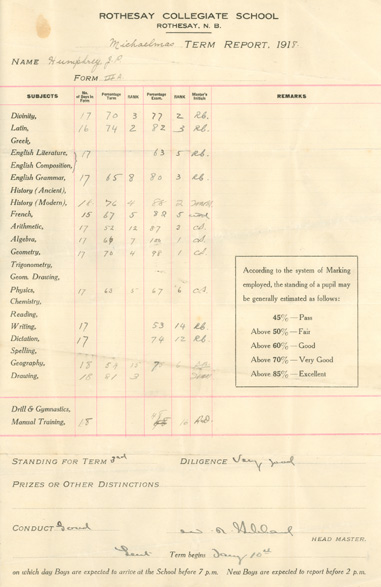 ROTHESAY COLLEGIATE SCHOOL
ROTHESAY, N. B.
Michaelmas TERM REPORT, 1918
NAME Humphrey J.P.
FORM III A
SUBJECTS No. of Boys in Form Percentage Term RANK Percentage Exam. RANK Master's Initials REMARKS
Divinity, 17 70 3 77 2 R.b.
Latin, 16 74 2 82 3 R.b.
Greek,
English Literature, 17 63 5 R.b.
English Composition,
English Grammar, 17 65 8 80 3 R.b.
History (Ancient),
History (Modern), 76 4 2
French, 15 67 5 82 5
Arithmetic, 17 52 12 2
Algebra, 17 7 1
Geometry, 17 70 4 98 1
Trigonometry,
Geom. Drawing,
Physics, 17 67 6
Chemistry,
Reading,
Writing, 17 53 14 R.b.
Dictation, 17 74 12 R.b.
Spelling,
Geography, 18
Drawing, 18 3
According to the system of Marking
employed, the standing of a pupil may
be generally estimated as follows:
45% — Pass
Above 50% — Fair
Above 60% — Good
Above 70% — Very Good
Above 85% — Excellent
Drill & Gymnastics,
Manual Training, 18
STANDING FOR TERM 3rd DILIGENCE Very good
PRIZES OR OTHER DISTINCTIONS
CONDUCT Good
HEAD MASTER.
Lent Term begins Jany 10th
on which day Boys are expected to arrive at the School before 7 p.m. New Boys are expected to report before 2 p.m.